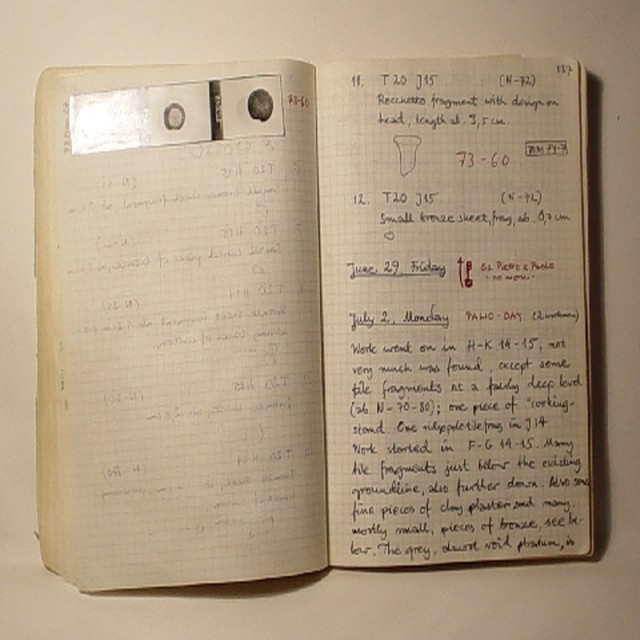 73-60
137
11. T20 J15 (N-72)
Rocchetto fragment with design on
head, length ab. 3,5 cm.
73-60
12. T20 J15 (N-72)
Small bronze sheet, frag, ab. 0,7 cm
June 29 Friday
S:a Pietro e Paolo
no work.
July 2, Monday PALIO-DAY (2 workmen)
Work went on in H-K 14-15, not
very much was found, except some
tile fragments at a fairly deep level
(ab. N-70-80); one piece of "cooking-
stand. One ridgepole tile frag in J14
Work started in F-G 14-15. Many
tile fragments just below the existing
groundline, also further down. Also some
fine pieces of clay plaster and many,
mostly small, pieces of bronze, see be-
low. The grey, almost void stratum, is